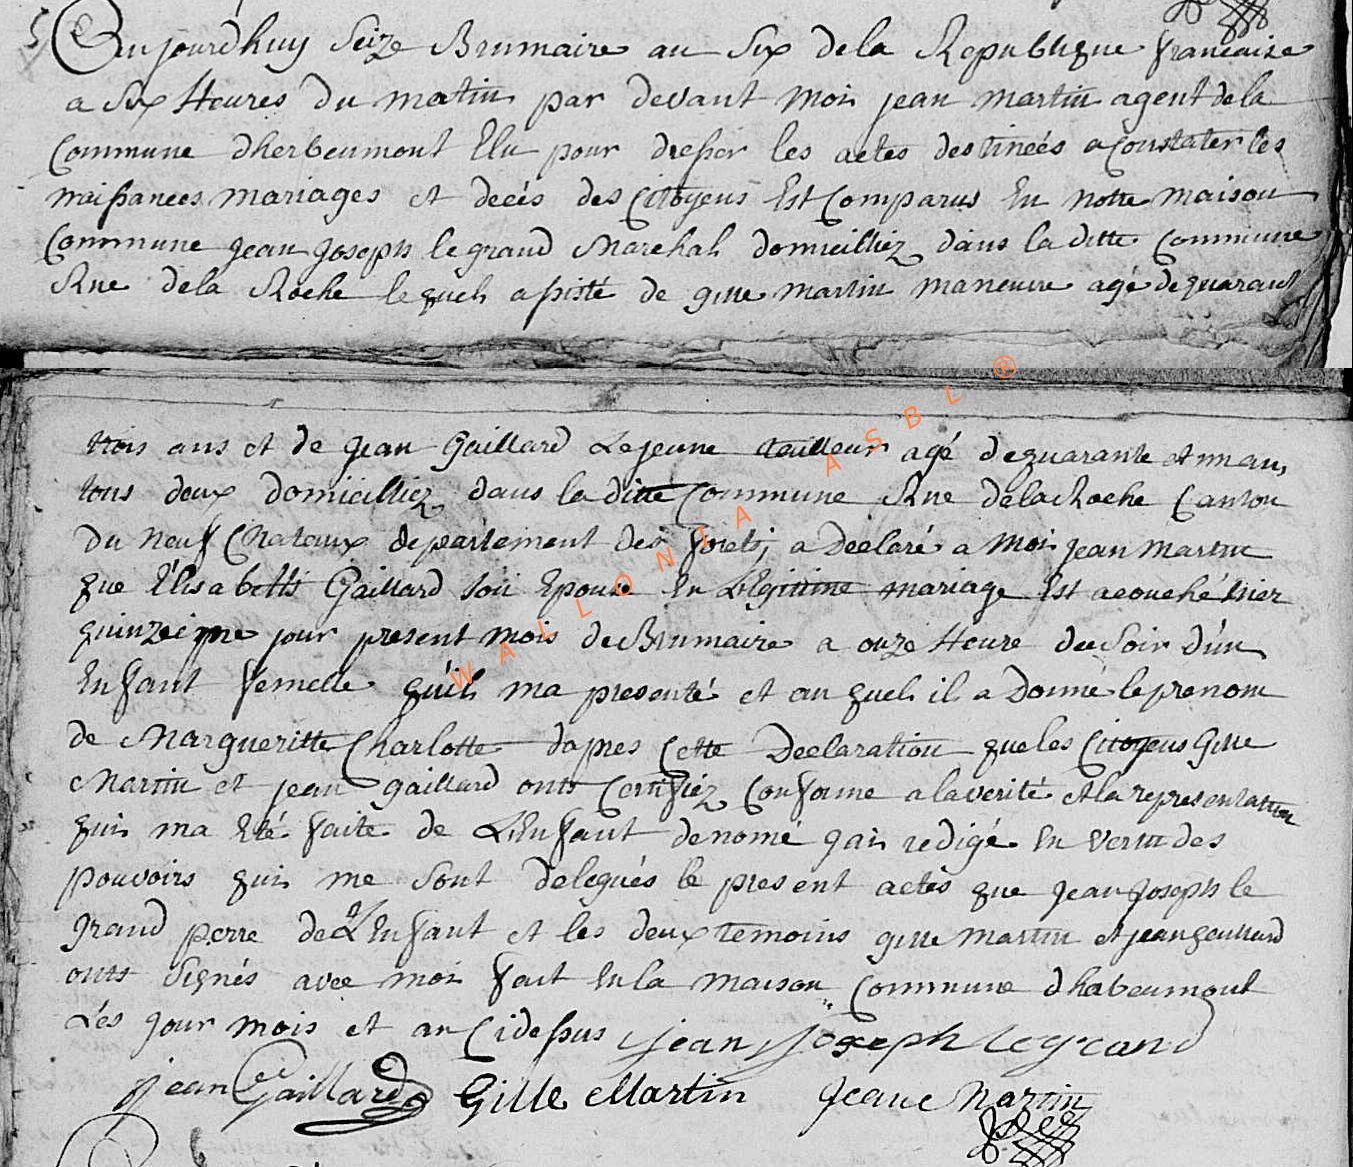 5 Aujourdhuy Seize Brumaire an Six de la Republique francaise
a Six Heures du matin par devant moi jean martin agent de la
Commune dherbeumont Elu pour dresser les actes destineés a Constater les
naissances mariages et decés des Citoyens Est Comparus En notre maison
Commune jean joseph le grand Marehal domicilliez dans la ditte Commune
Rue dela Roche lequel assisté de gille martin maneuvre agé de quarant
trois ans et de jean Gaillard Lejeune tailleur agé dequarante et un an,
tous deux domicilliez dans la ditte Commune Rue dela Roche Canton
du neuf Chataux departement des forets, a declaré a moi jean martin
que Elisabetts Gaillard son Epouse En Legitime mariage Est acouché hier
quinzeime jour present mois de Brumaire a onze Heure du Soir d'un
Enfant femelle quil ma presenté et au quel il a Donné le prenom
de Margueritte Charlotte dapres Cette Declaration que les Citoyens Gille
Martin et jean gaillard onts Certifiez Conforme a la verité et la representation
qui ma Eté faite de L'Enfant denomé jai redigé En vertu des
pouvoirs qui me sont delegués le present actes que jean joseph le
grand perre de L'Enfant et les deux temoins gille martin et jean gaillard
onts Signés avec moi fait En la maison Commune dhabeumont
Lés jour mois et an Cidessus jean joseph legrand
jean Gaillard Gille Martin Jean Martin
WALLONIA ASBL ®